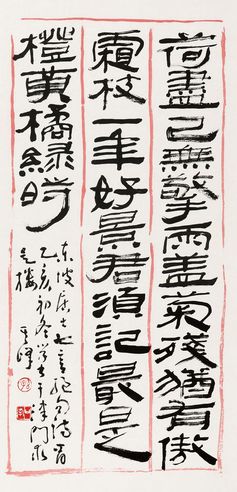 荷盡已無擎雨蓋菊殘猶有傲
霜枝一年好景君須記最是
橙黃橘綠時
东坡居士七言絕句詩首
乙亥初冬学書于門
是樓